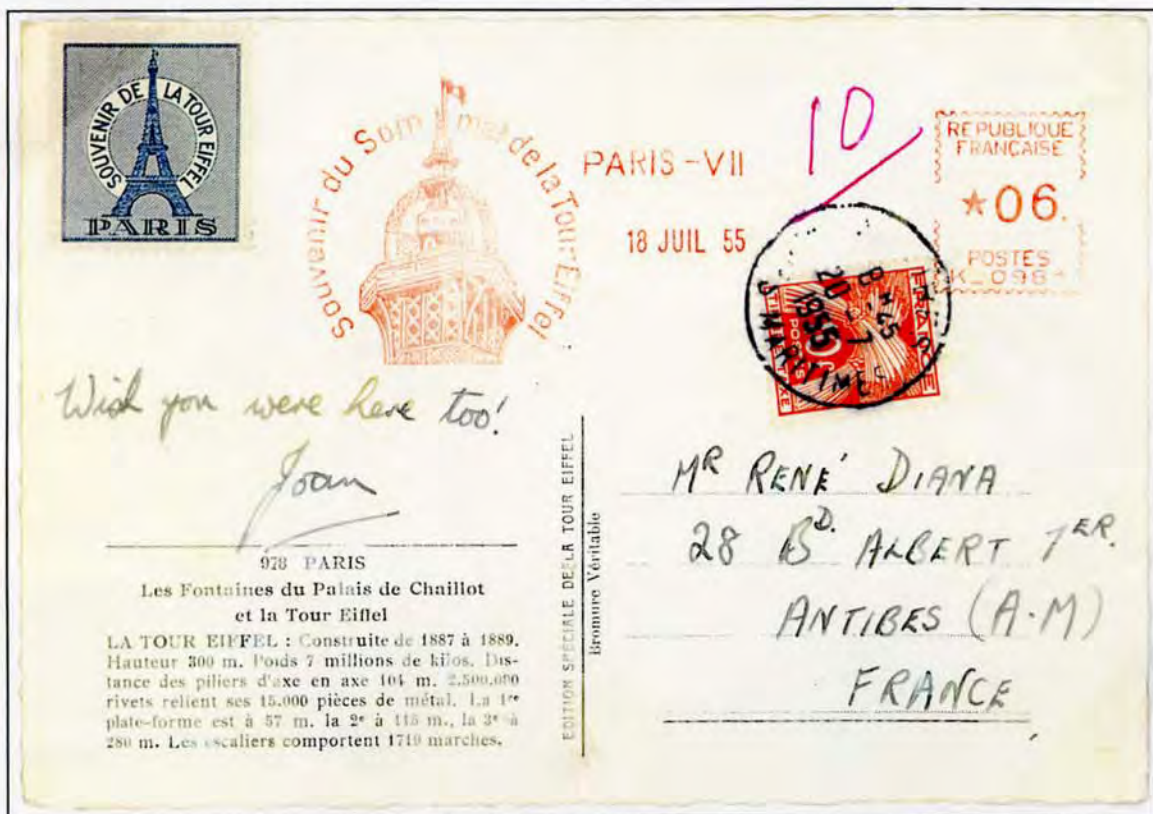 SOUVENIR DE LA TOUR EIFFEL
PARIS
Souvenir du Sommet de la Tour Eiffel
PARIS - VII
18 JUIL 55
10
RÉPUBLIQUE
FRANÇAISE
★06.
POSTES
K_098
8 H 45
20 - 7
1955
MARITIMES
FRANÇAISE
POSTES
Wish you were here too!
Joan
978 PARIS
Les Fontaines du Palais de Chaillot
et la Tour Eiffel
LA TOUR EIFFEL : Construite de 1887 à 1889.
Hauteur 300 m. Poids 7 millions de kilos. Dis-
tance des piliers d'axe en axe 104 m. 2.500.000
rivets relient ses 15.000 pièces de métal. La 1re
plate-forme est à 57 m. la 2e à 115 m., la 3e à
280 m. Les escaliers comportent 1710 marches.
EDITION SPÉCIALE DE LA TOUR EIFFEL
Bromure Véritable
MR RENÉ DIANA
28 BD. ALBERT 1ER.
ANTIBES (A.M)
FRANCE